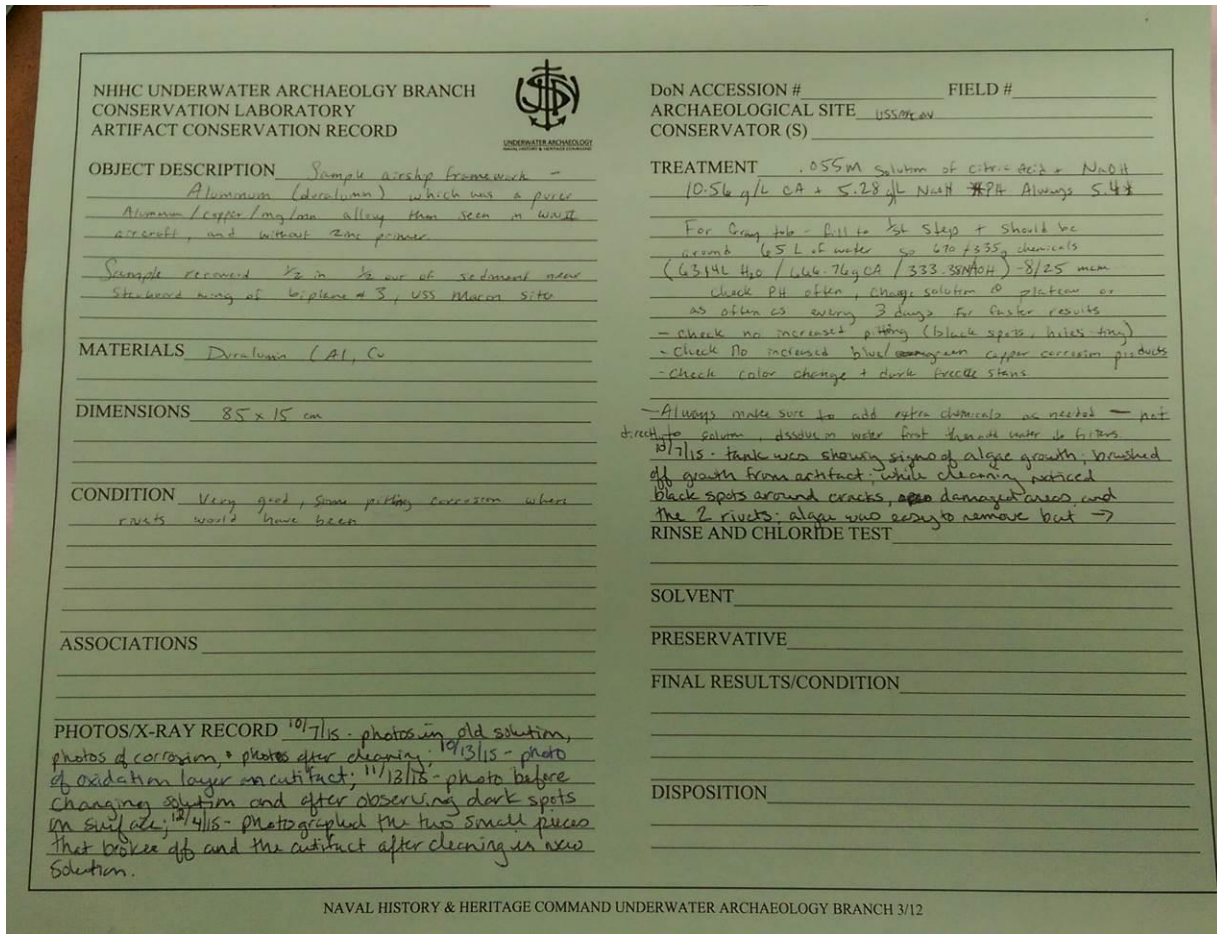 NHHC UNDERWATER ARCHAEOLGY BRANCH
CONSERVATION LABORATORY
ARTIFACT CONSERVATION RECORD
UNDERWATER ARCHAEOLOGY
NAVAL HISTORY & HERITAGE COMMAND
OBJECT DESCRIPTION Sample airship framework -
Alumunum (duralumn) which was a purer
Alumunum/copper/mg/mn alloy then seen in WWII
aircraft, and without zinc primer.
Sample recovered 1/2 in 1/2 out of sediment near
Starboard wing of biplane # 3, USS Macon site
MATERIALS Duralumin (Al, Cu
DIMENSIONS 85 x 15 cm
CONDITION Very good, some pitting corrosion where
rivets would have been
ASSOCIATIONS
PHOTOS/X-RAY RECORD 10/7/15 - photos in old solution,
photos of corrosion, + photos after cleaning; 10/13/15 - photo
of oxidation layer on artifact; 11/13/15 - photo before
changing solution and after observing dark spots
on surface; 12/4/15 - photographed the two small pieces
that broke off and the artifact after cleaning in new
solution.
DoN ACCESSION # FIELD #
ARCHAEOLOGICAL SITE USS
CONSERVATOR (S)
TREATMENT .055M solution of citric Acid + NaOH
10.56 g/L CA + 5.28 g/L NaOH PH Always 5.4
For Gray tub - fill to 1st step + should be
around 65 L of water so 670 + 335g chemicals
(63.14L H2O / 666.76g CA / 333.38 NaOH) - 8/25 mcm
check PH often, change solution @ plateau or
as often as every 3 days for faster results
- check no increased pitting (black spots, holes - tiny)
- check no increased blue/green copper corrosion products
- check color change + dark freckle stans
- Always make sure to add extra chemicals as needed - not
directly to solution, dissolve in water first then add water to filters
10/7/15 - tank was showing signs of algae growth; brushed
off growth from artifact; while cleaning noticed
black spots around cracks, damaged areas, and
the 2 rivets; algae was easy to remove but →
RINSE AND CHLORIDE TEST
SOLVENT
PRESERVATIVE
FINAL RESULTS/CONDITION
DISPOSITION
NAVAL HISTORY & HERITAGE COMMAND UNDERWATER ARCHAEOLOGY BRANCH 3/12